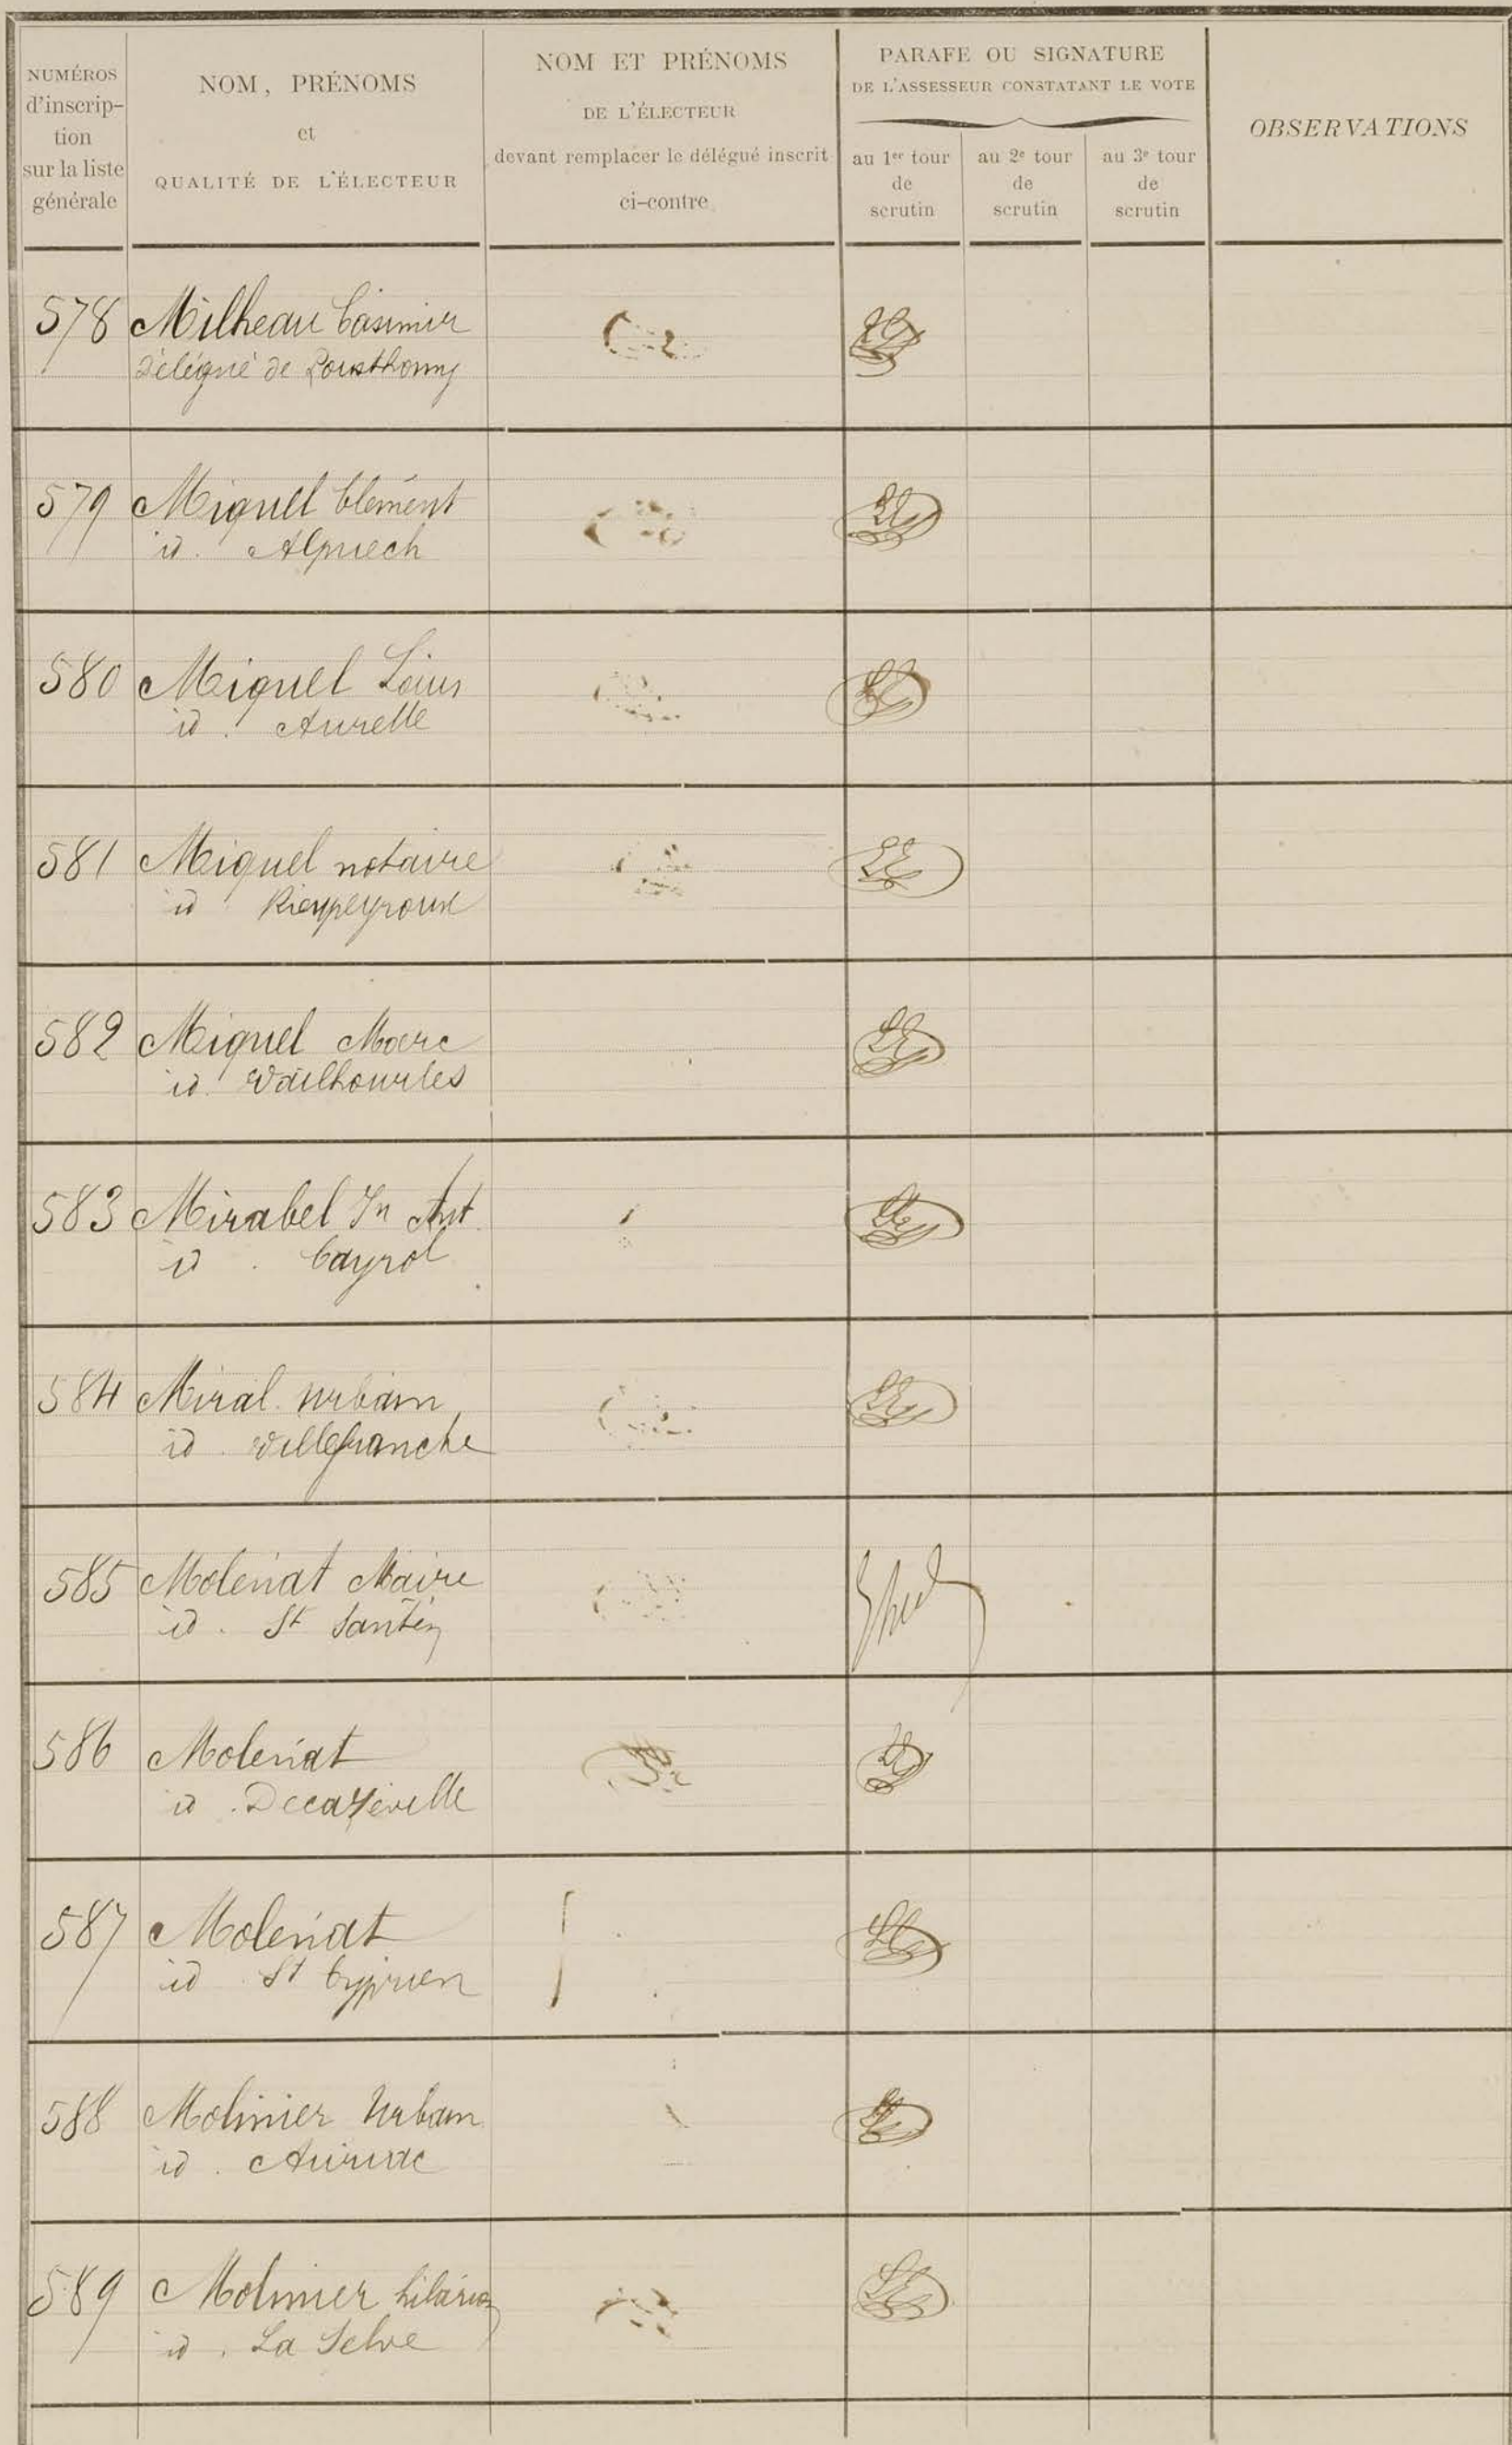 NUMÉROS
d'inscrip-
tion
sur la liste
générale
NOM, PRÉNOMS
et
QUALITÉ DE L'ÉLECTEUR
NOM ET PRÉNOMS
DE L'ÉLECTEUR
devant remplacer le délégué inscrit
ci-contre
PARAFE OU SIGNATURE
DE L'ASSESSEUR CONSTATANT LE VOTE
au 1er tour
de
scrutin
au 2e tour
de
scrutin
au 3e tour
de
scrutin
OBSERVATIONS
578 Milheau Casimir
Délégué de Pousthomy
579 Miquel Clément
id. Alpuech
580 Miquel Louis
id. Aurelle
581 Miquel notaire
id Rieupeyroux
582 Miquel Marc
id. Vailhourles
583 Mirabel Jn Ant.
id. Cayrol
584 Miral Urbain
id. Villefranche
585 Molénat Maire
id. St Santin
586 Molénat
id. Decazeville
587 Molénat
id St Cyprien
588 Molinier Urbain
id. Auriac
589 Molinier hilarion
id. La Selve